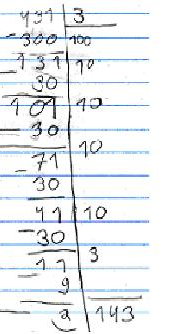 431 3
-300 100
131 10
30
101 10
30 10
-71
30
41 10
-30
-11 3
9
2 143